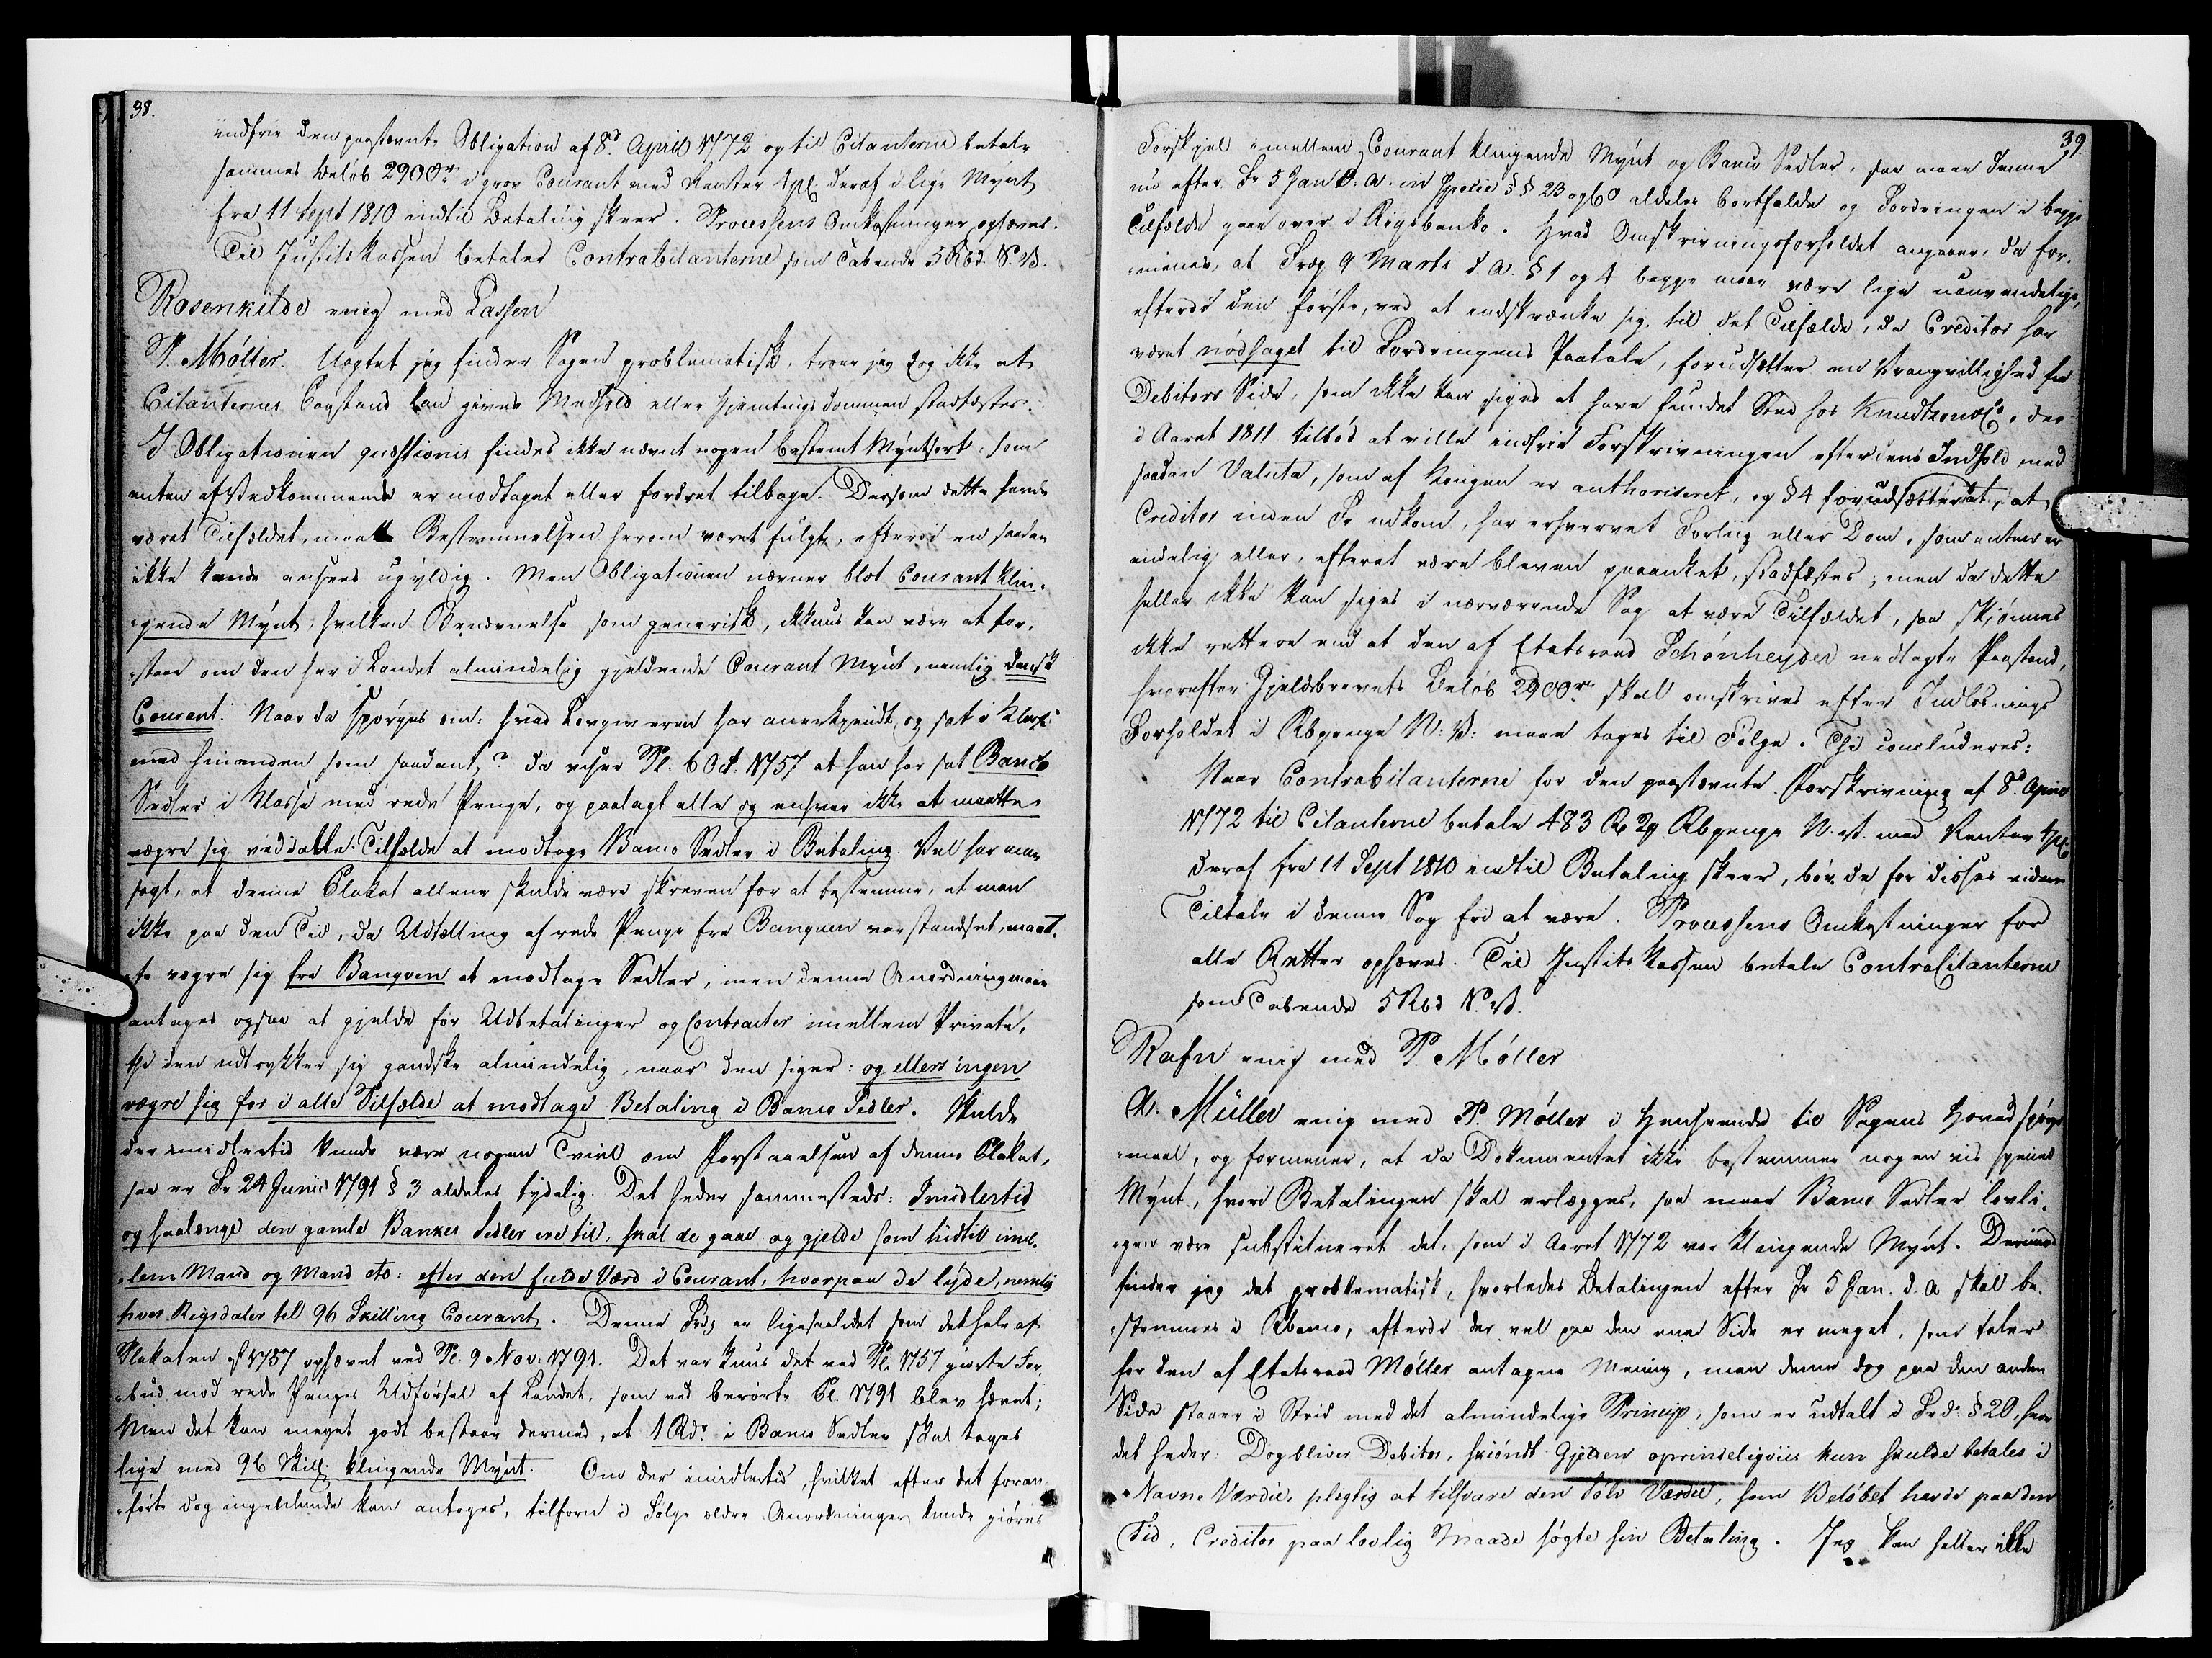 38.
indfrie den paastævnte Obligation af 8de April 1772 og til Citanterne betale
sammes Beløb 2900 rd i grov Courant med Renter 4 pCt. deraf i lige Mynt
fra 11 Sept 1810 indtil Betaling skeer. Processens Omkostninger ophæves.
Til Justitskassen betaler Contracitanterne som Tabende 5 Rbd. N.V.
Rosenkilde enig med Lassen
P. Møller. Uagtet jeg finder Sagen problematisk, troer jeg dog ikke at
Citanternes Paastand kan gives Medhold eller Hjemtings Dommen stadfæstes.
I Obligationen quæstionis findes ikke nævnt nogen bestemt Myntsort, som
enten af Vedkommende er modtaget eller fordret tilbage. Dersom dette havde
været Tilfældet, maatte Bestemmelsen herom været fulgt, efterdi en saadan
ikke kunde ansees ugyldig. Men Obligationen nævner blot Courant klin-
gende Mynt, hvilken Benævnelse som generisk, ikkuns kan være at for-
staae om den her i Landet almindelig gjeldende Courant Mynt, nemlig dansk
Courant. Naar da spørges om: hvad Lovgiveren har anerkjendt og sat i Klasse
med hinanden som saadant? da viser Pl. 6 Oct. 1757 at han har sat Banco
Sedler i Klasse med rede Penge, og paalagt alle og enhver ikke at maatte
vægre sig ved i alle Tilfælde at modtage Banco Sedler i Betaling. Vel har man
sagt, at denne Plakat allene skulde være skreven for at bestemme, at man
ikke paa den Tid, da Udtælling af rede Penge fra Banquen var standset, maat-
te vægre sig fra Banqven at modtage Sedler, men denne Anordning maae
antages ogsaa at gjelde for Udbetalinger og Contracter imellem Private,
thi den udtrykker sig gandske almindelig, naar den siger: og ellers ingen
vægre sig for i alle Tilfælde at modtage Betaling i Banco Sedler. Skulde
der imidlertid kunde være nogen Tvivl om Forstaaelsen af denne Plakat,
saa er Fr 24 Junii 1791 § 3 aldeles tydelig. Det heder sammesteds: Imidlertid
og saalænge den gamle Bankes Sedler ere til, skal de gaae og gjelde som hidtil imel-
lem Mand og Mand etc: efter den fulde Værd i Courant, hvorpaa de lyde, nemlig
hver Rigsdaler til 96 Skilling Courant. Denne Frdg er ligesaalidet som det hele af
Plakaten af 1757 ophævet ved Pl. 9 Nov. 1791. Det var kuns det ved Pl. 1757 giorte For-
bud mod rede Penges Udførsel af Landet, som ved berørte Pl. 1791 blev hævet;
Men det kan meget godt bestaae dermed, at 1 Rdr i Banco Sedler skal tages
lige med 96 Skill. klingende Mynt. Om der imidlertid, hvilket efter det foran-
førte dog ingenlunde kan antages, tilforn i Følge ældre Anordninger kunde giøres
39.
Forskjel imellem Courant klingende Mynt og Banco Sedler, saa maae denne
nu efter Fr 5 Jan d. A. in specie §§ 23 og 60 aldeles bortfalde og Fordringen i begge
Tilfælde gaae over i Rigsbanko. Hvad Omskrivningsforholdet angaaer, da for-
menes, at Frdg 9 Marts d. A. § 1 og 4 begge maae være lige uanvendelige,
efterdi den første, ved at indskrænke sig til det Tilfælde, da Creditor har
været nødsaget til Fordringens Paatale, forudsætter en Uvangvillighed fra
Debitors Side, som ikke kan siges at have fundet Sted hos Knudtzon & Co, der
i Aaret 1811 tilbød at ville indfrie Forskrivningen efter dens Indhold med
saadan Valuta, som af Kongen er authoriseret, og § 4 forudsætter at
Creditor inden Fr udkom, har erhvervet Forliig eller Dom, som enten er
endelig eller, efterat være bleven paaanket, stadfæstes; men da dette
heller ikke kan siges i nærværende Sag at være Tilfældet, saa skjønnes
ikke rettere end at den af Etatsraad Schønheyder nedlagte Paastand,
hvorefter Gjeldsbrevets Beløb 2900 rd skal omskrives efter Indløsnings
Forholdet i Rbpenge N: V: maae tages til Følge. Thi concluderes:
Naar Contracitanterne for den paastævnte Forskrivning af 8de April
1772 til Citanterne betale 483 Rd 2 Rbpenge N. V. med Renter 4 pCt
deraf fra 11 Sept 1810 indtil Betaling skeer, bør de for disses videre
Tiltale i denne Sag fri at være. Processens Omkostninger for
alle Retter ophæves. Til Justits Kassen betale Contracitanterne
som Tabende 5 Rbd N. V.
Rafn enig med P. Møller
A. Müller enig med P. Møller i Henseende til Sagens Hovedspørgs-
maal, og formener, at da Dokumentet ikke bestemmer nogen vis speciel
Mynt, hvori Betalingen skal erlægges, saa maae Banco Sedler lovli-
gen være substitueret det, som i Aaret 1772 var klingende Mynt. Derimod
finder jeg det problematisk, hvorledes Betalingen efter Fr 5 Jan. d. A skal be-
stemmes i Rbanco, efterdi der vel paa den ene Side er meget, som taler
for den af Etatsraad Møller antagne Mening, men denne dog paa den anden
Side staaer i Strid med det almindelige Princip, som er udtalt i Frd. § 20, hvor
det heder: Dog bliver Debitor, skiøndt Gjelden oprindeligviis kun skulde betales i
Navne Værdie, pligtig at tilsvare den Sølv Værdie, som Beløbet havde paa den
Tid, Creditor paa lovlig Maade søgte sin Betaling. Jeg kan heller ikke